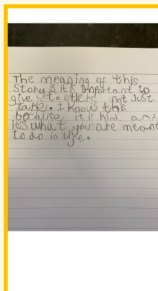 The meaning of this
Story is it's important to
give to others not Just
take. I know this
because it is kind and
it's what you are meant
to do in life.